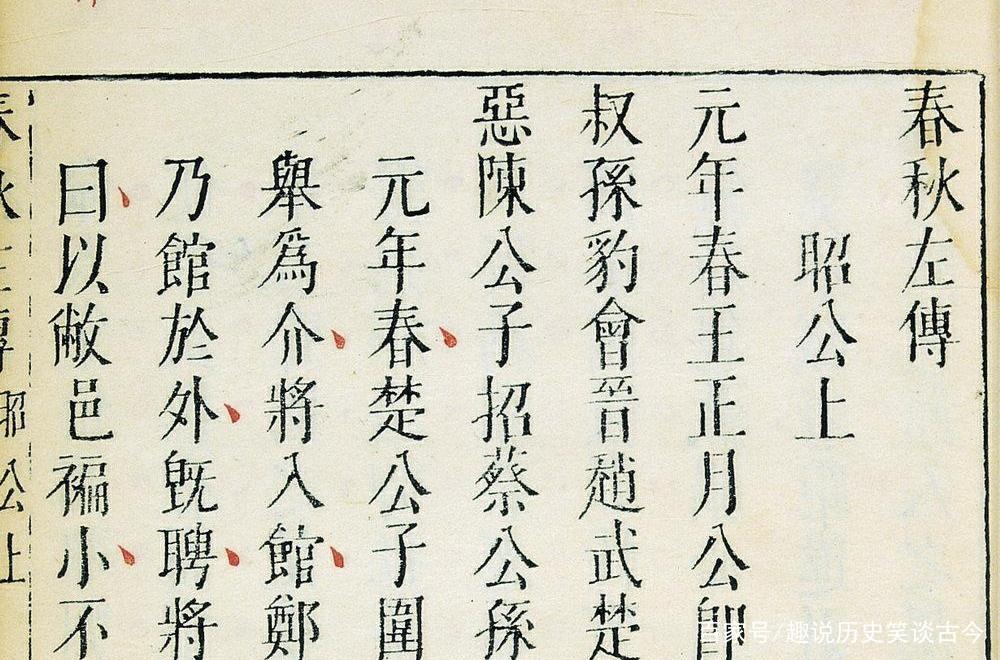 春秋左傳
昭公上
元年春王正月公卽
叔孫豹會晉趙武楚
惡陳公子招蔡公孫
元年春楚公子圍
舉爲介將入館鄭
乃館於外旣聘將
曰以敝邑褊小不
昭公上
百家号/趣说历史笑谈古今